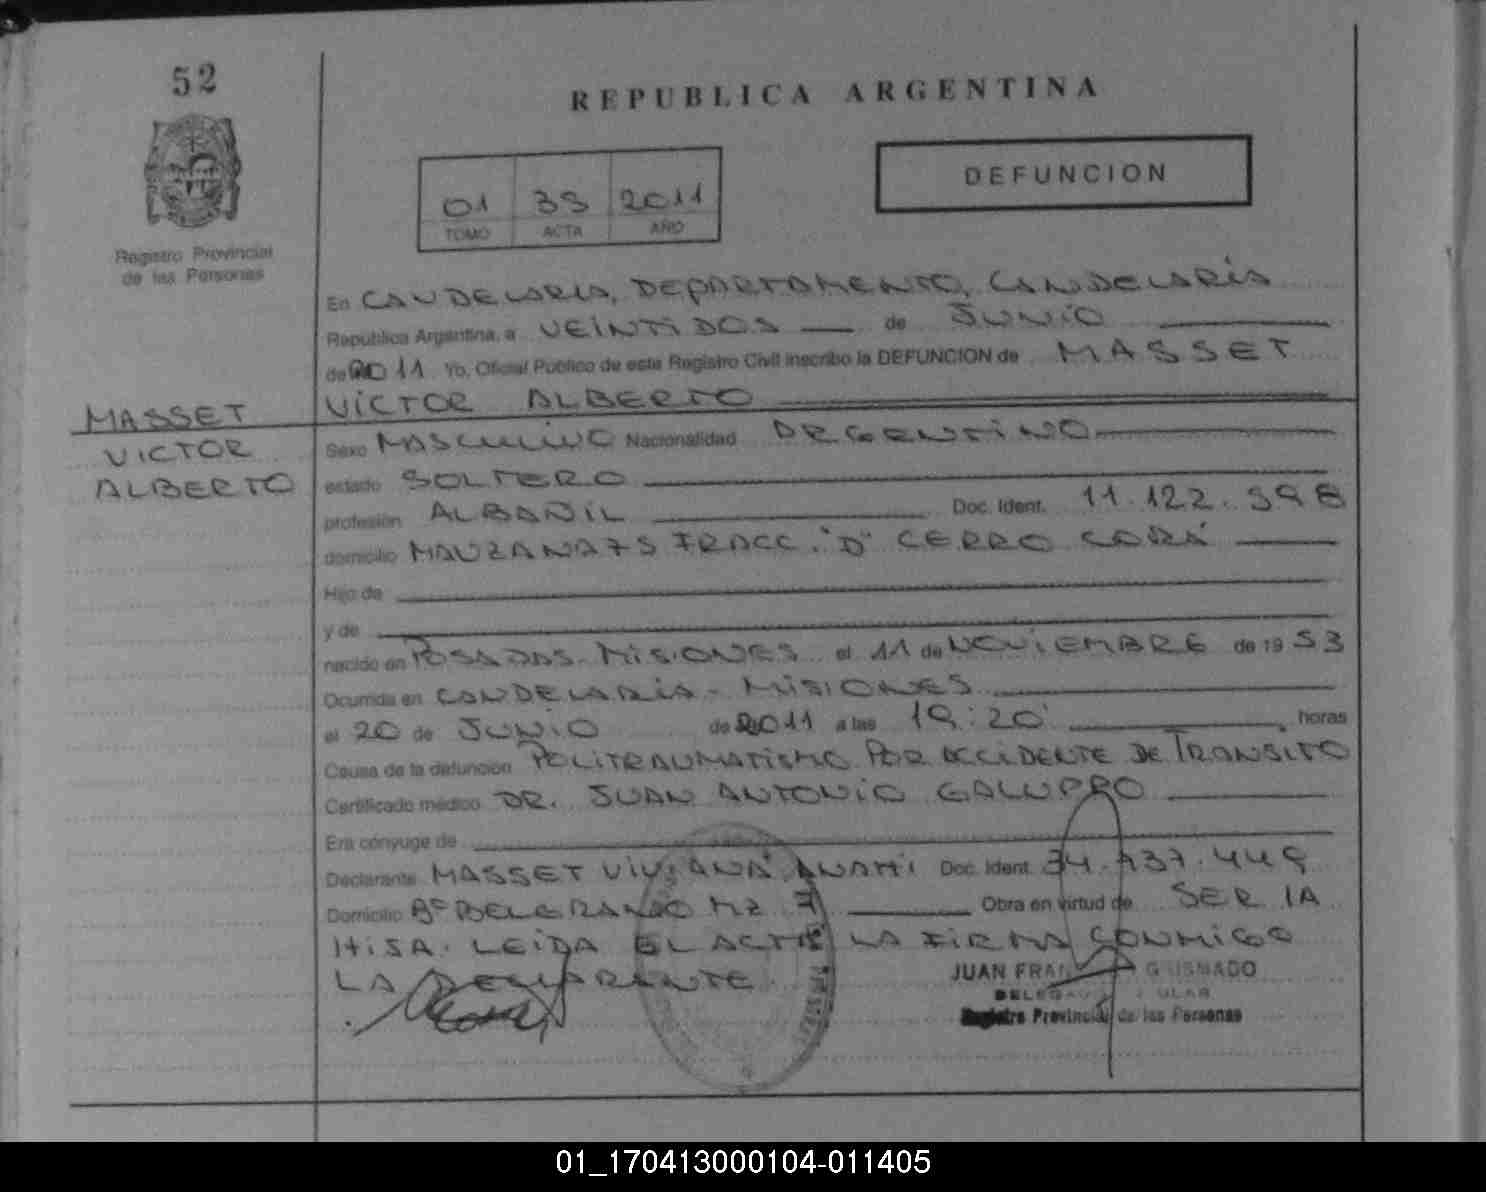 52
REPUBLICA ARGENTINA
DEFUNCION
01 39 2011
TOMO ACTA AÑO
Registro Provincial
de las Personas
En CANDELARIA, DEPARTAMENTO, CANDELARIA
República Argentina, a VEINTIDOS de JUNIO
de 2011 Yo, Oficial Público de este Registro Civil inscribo la DEFUNCION de MASSET
VICTOR ALBERTO
MASSET
VICTOR
ALBERTO
Sexo MASCULINO Nacionalidad ARGENTINO
estado SOLTERO
profesión ALBAÑIL Doc. Ident. 11.122.598
domicilio MANZANA 75 FRACC. "D" CERRO CORÁ
Hijo de
y de
nacido en POSADAS - MISIONES el 11 de NOVIEMBRE de 19 53
Ocurrida en CANDELARIA - MISIONES
el 20 de JUNIO de 2011 a las 19:20 horas
Causa de la defunción POLITRAUMATISMO POR ACCIDENTE DE TRANSITO
Certificado médico DR. JUAN ANTONIO GALUPPO
Era cónyuge de
Declarante MASSET VIVIANA ANAHI Doc. Ident. 34.737.449
Domicilio Bº BELGRANO MZ 7 Obra en virtud de SER LA
HIJA. LEIDA EL ACTA LA FIRMA CONMIGO
LA DECLARANTE.
JUAN
Registro Provincial de las Personas
01_170413000104-011405